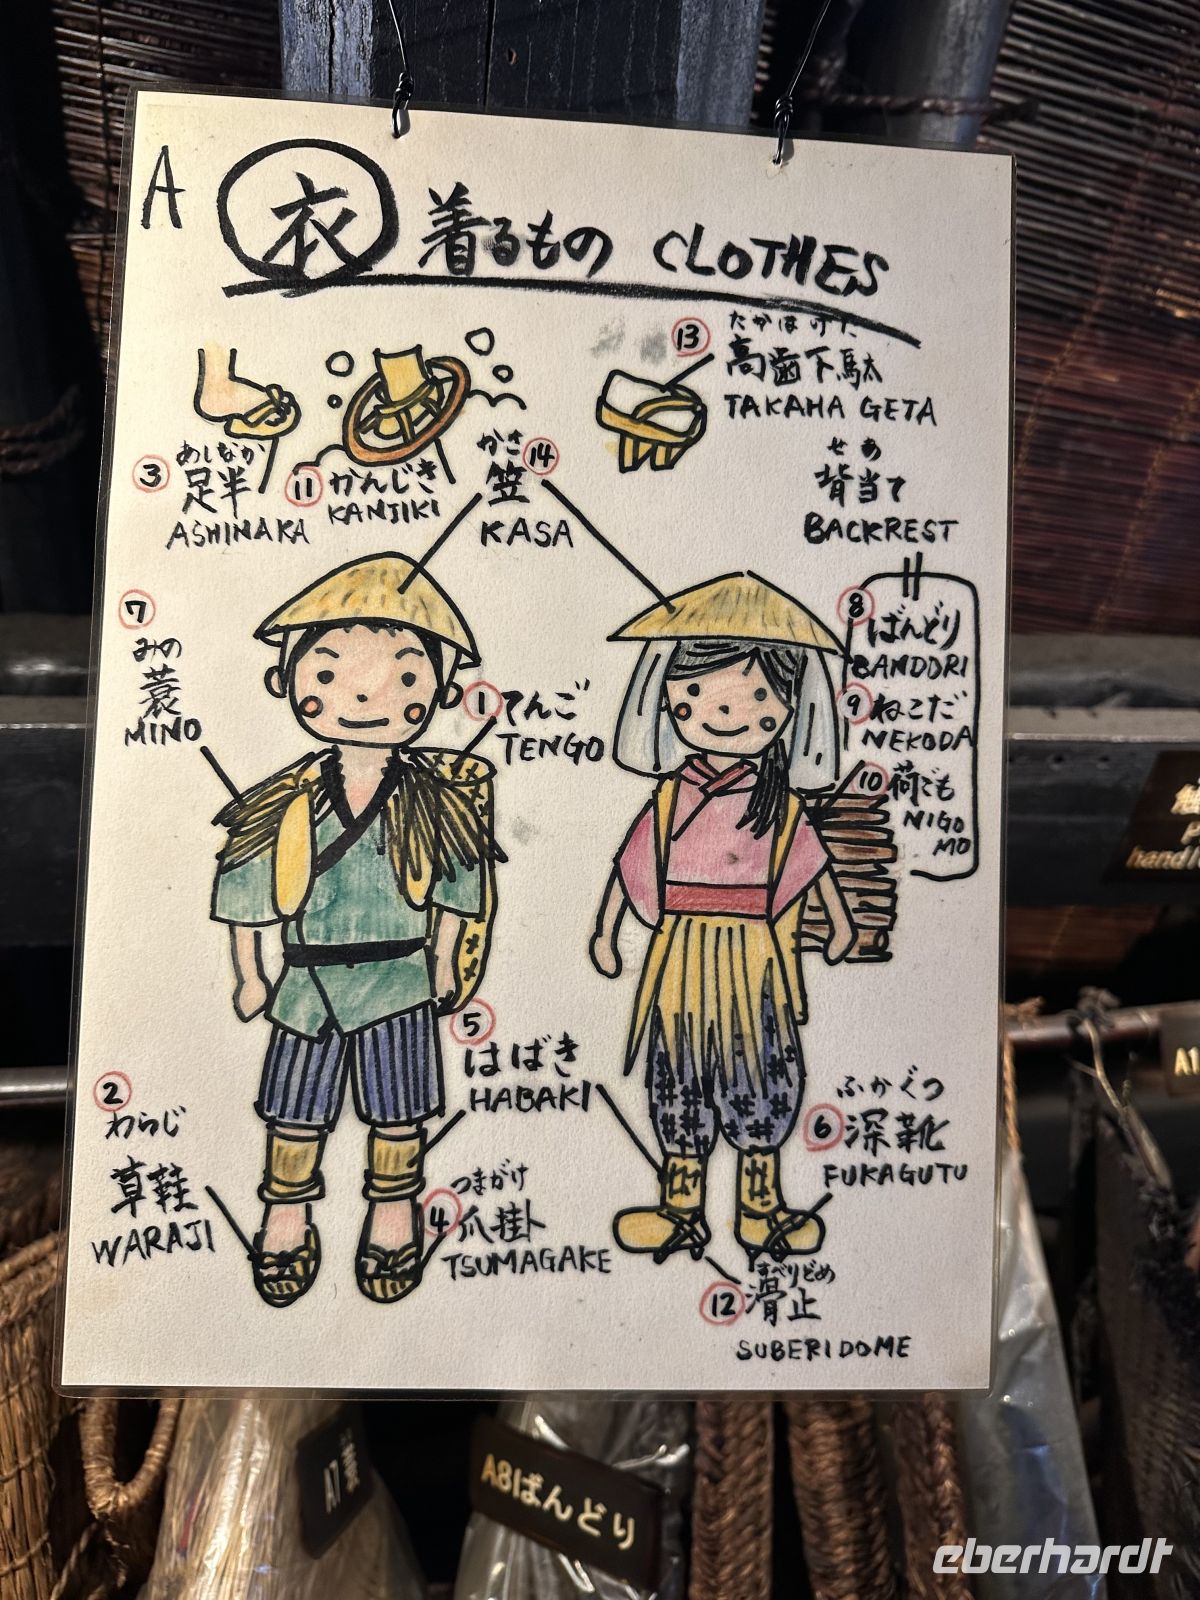 A
衣 着るもの CLOTHES
⑬ たかはげた
高歯下駄
TAKAHA GETA
③ あしなか
足半
ASHINAKA
⑪ かんじき
KANJIKI
かさ ⑭
笠
KASA
せあ
背当て
BACKREST
⑦
みの
蓑
MINO
① てんご
TENGO
⑧ ばんどり
BANDORI
⑨ ねこだ
NEKODA
⑩ 荷ごも
NIGO
MO
⑤
はばき
HABAKI
②
わらじ
草鞋
WARAJI
つまがけ
④ 爪掛
TSUMAGAKE
ふかぐつ
⑥ 深靴
FUKAGUTU
すべりどめ
⑫ 滑止
SUBERIDOME
hand
A1
A7 蓑
A8ばんどり
eberhardt